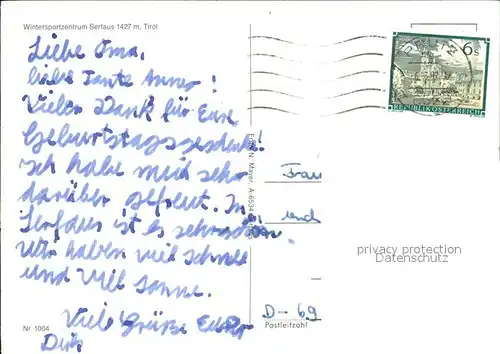 Wintersportzentrum Serfaus 1427 m, Tirol
Liebe Oma,
liebe Tante Anne!
Vielen Dank für Eure
Geburtstagsgeschenke!
Ich habe mich sehr
darüber gefreut. In
Serfaus ist es sehr schön.
Wir haben viel Schnee
und viel Sonne.
Viele Grüße Euer
Dirk
Nr. 1004
6 S
REPUBLIK ÖSTERREICH
Frau
und
privacy protection
Datenschutz
D-69
Postleitzahl